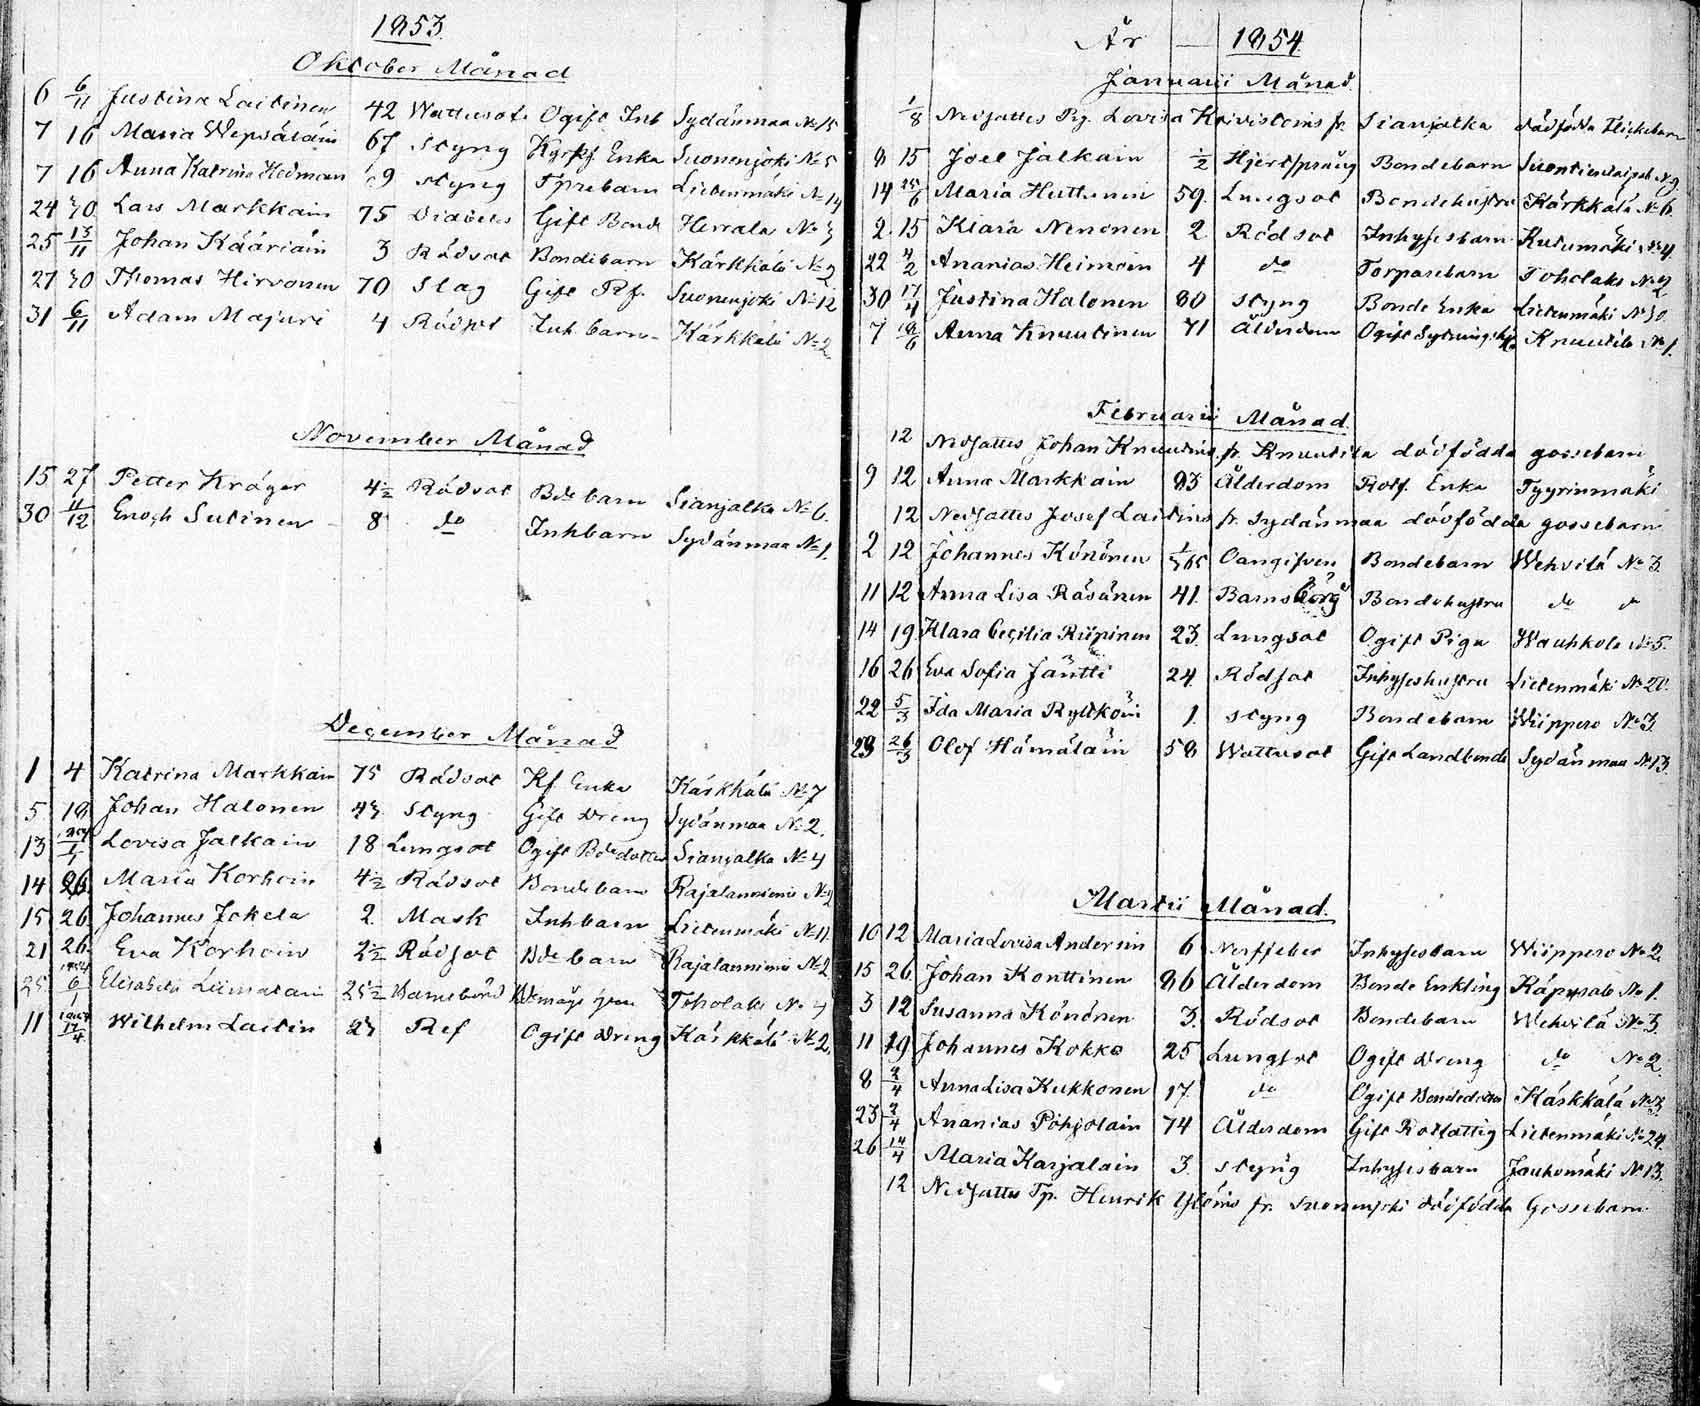 1853.
Oktober Månad
6 6/11 Justina Laitinen 42 Wattusot Ogift Inh Sydänmaa No 15
7 16 Maria Wepsäläin 67 Styng Enka Suonenjoki No 5
7 16 Anna Katrina Hedman 9 Styng Tprebarn Lietenmäki No 14
24 30 Lars Markkain 75 Diabetes Gift Bonde Herrala No 3
25 13/11 Johan Kääriäin 3 Rödsot Bondebarn Kärkkälä No 2
27 30 Thomas Hirvonen 70 Slag Gift Rf. Suonenjoki No 12
31 6/11 Adam Majuri 4 Rödsot Inh barn Kärkkälä No 2
November Månad
15 27 Petter Kröger 4½ Rödsot Bde barn Sianjalka No 6.
30 11/12 Enoch Sutinen 8 do Inhbarn Sydänmaa No 1.
December Månad
1 4 Katrina Markkain 75 Rödsot Rf Enka Kärkkälä No 7
5 18 Johan Halonen 43 Styng Gift Dreng Sydänmaa No 2.
13 Lovisa Jalkain 18 Lungsot Ogift Bdedotter Sianjalka No 4
14 26 Maria Korhoin 4½ Rödsot Bondebarn Rajalanniemi No 2
15 26 Johannes Jokela 2 Mask Inhbarn Lietenmäki No 11
21 26 Eva Korhoin 2½ Rödsot Bde barn Rajalanniemi No 2
25 1854 6/1 Elisabeth Liimatain 25½ Barnsbörd Toholaks No 4
11 17/4 Wilhelm Laitin 23 Ref Ogift Dreng Kärkkälä No 2.
År 1854.
Januarii Månad
1/8 Nedsattes Pig. Lovisa Kvivistoins fr. Sianjalka dödfödda flickebarn
8 15 Joel Jalkain ½ Hjertsprång Bondebarn No 9
14 25/6 Maria Huttunen 59. Lungsot Bondehustru Kärkkälä No 6.
2 15 Klara Nenonen 2 Rödsot Inhysesbarn Rutumäki No 4.
22 4/2 Ananias Heimoin 4 do Torparebarn Toholaks No 2
30 17/4 Justina Halonen 80 Styng Bonde Enka Lietenmäki No 30.
7 18/6 Anna Knuutinen 71 Ålderdom Ogift Knuutila No 1.
Februarii Månad.
12 Nedsattes Johan Knuutins fr. Knuutila dödfödda gossebarn
9 12 Anna Markkain 83 Ålderdom Rotf. Enka Tyyrinmäki
12 Nedsattes Josef Laitins fr. Sydänmaa dödfödda gossebarn
2 12 Johannes Könönen 1/365 Oangifven Bondebarn Wehvilä No 3.
11 12 Anna Lisa Räsänen 41. Barnsbörd Bondehustru do do
14 19 Klara Cecilia Riipinen 23. Lungsot Ogift Piga Wauhkola No 5.
16 26 Eva Sofia Jäntti 24. Rödsot Inhyseshustru Lietenmäki No 20.
22 5/3 Ida Maria Rytköin 1. Styng Bondebarn Wiippero No 3
28 26/3 Olof Hämäläin 58 Wattusot Gift Landbonde Sydänmaa No 13.
Martii Månad.
10 12 Maria Lovisa Andersin 6 Nerffeber Inhysesbarn Wiippero No 2
15 26 Johan Konttinen 86 Ålderdom Bonde Enkling Käpysalo No 1.
3 12 Susanna Könönen 3. Rödsot Bondebarn Wehvilä No 3
11 19 Johannes Kokko 25 Lungsot Ogift Dreng do No 2
8 2/4 Anna Lisa Kukkonen 17. do Ogift Bondedotter Kärkkälä No 3
23 2/4 Ananias Pohjolain 74 Ålderdom Gift Rotfattig Lietenmäki No 24.
26 14/4 Maria Karjalain 3. Styng Inhysesbarn Jauhomäki No 13.
12 Nedsattes Tp. Henrik Ylöins fr. Suonenjoki dödfödda Gossebarn